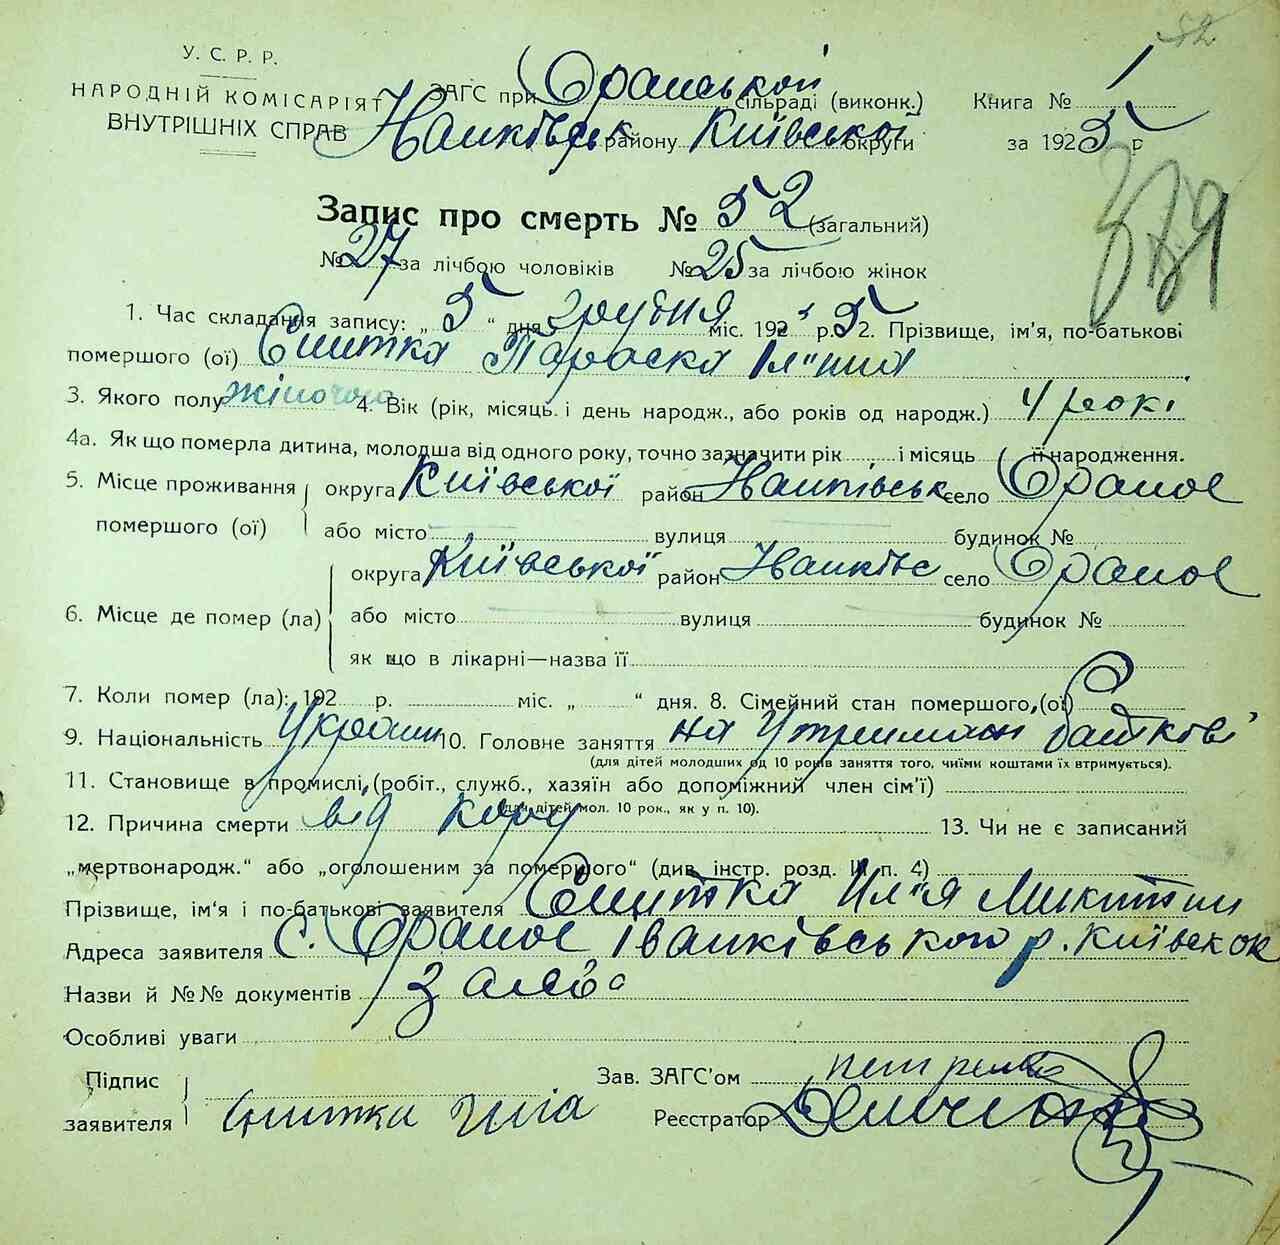 52
У. С. Р. Р.
НАРОДНІЙ КОМІСАРІЯТ
ВНУТРІШНІХ СПРАВ
ЗАГС при Оранській сільраді (виконк.)
Іванківськ району Київської округи
Книга № 1
за 1925 р
379
Запис про смерть № 52 (загальний)
№ 27 за лічбою чоловіків № 25 за лічбою жінок
1. Час складання запису: „ 5 “ дня грудня міс. 192 р. 5 2. Прізвище, ім'я, по-батькові
помершого (ої) Снитка Параска Іл'їнша
3. Якого полу жіночого 4. Вік (рік, місяць і день народж., або років од народж.) 4 рокі
4а. Як що померла дитина, молодша від одного року, точно зазначити рік і місяць її народження.
5. Місце проживання помершого (ої) округа Київської район Іванківськ село Ораное
або місто вулиця будинок №
6. Місце де помер (ла) округа Київської район Іванківс село Ораное
або місто вулиця будинок №
як що в лікарні—назва її
7. Коли помер (ла): 192 р. міс. „ “ дня. 8. Сімейний стан помершого, (ої)
9. Національність Украин 10. Головне заняття на утриман батькові
(для дітей молодших од 10 років заняття того, чиїми коштами їх втримується).
11. Становище в промислі, (робіт., служб., хазяїн або допоміжний член сім'ї)
(для дітей мол. 10 рок., як у п. 10).
12. Причина смерти від кору 13. Чи не є записаний
„мертвонародж.“ або „оголошеним за помершого“ (див. інстр. розд. III п. 4)
Прізвище, ім'я і по-батькові заявителя Снитка Ил'я Микитин
Адреса заявителя с. Ораное Іванківського р. Київск ок
Назви й №№ документів
Особливі уваги
Підпис заявителя Снитки
Зав. ЗАГС'ом
Реєстратор